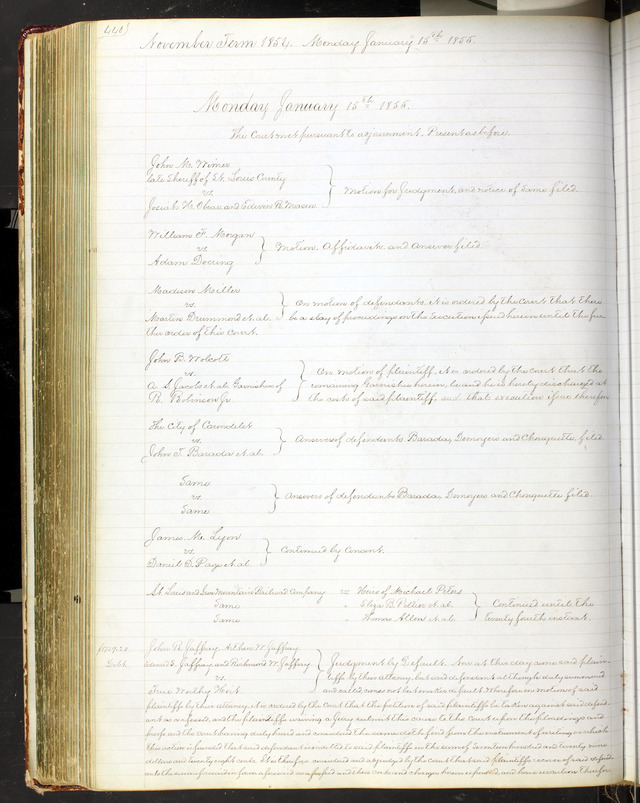 440
November Term 1854. Monday January 15th 1855.
Monday January 15th 1855.
The Court met pursuant to adjournment. Present as before.
John M. Wimer
late Sheriff of St. Louis County
vs.
Josiah H. Obear and Edwin R. Mason
Motion for Judgment, and notice of same filed.
William F. Morgan
vs.
Adam
Motion, Affidavit, and Answer filed
Madison Miller
vs.
Martin Drummond et al.
On motion of defendants, it is ordered by the Court that there
be a stay of proceedings on the execution issued herein until the fur
ther order of this Court.
John B. Wolcott
vs.
A. S. Jacobs et al. Garnishees of
R. Robinson Jr.
On motion of plaintiff, it is ordered by the Court that the
remaining Garnishee herein, be and he is hereby discharged at
the costs of said plaintiff, and that execution issue therefor
The City of Carondelet
vs.
John T. Barada et al.
Answers of defendants Barada, and Chouquette filed
Same
vs.
Same
Answers of defendants Barada, and Chouquette filed.
James M. Lyon
vs.
Daniel D. Page et al.
Continued by Consent.
St. Louis and Iron Mountain Railroad Company vs Heirs of Michael Peters
Same " Eliza B. et al.
Same " Thomas Allen et al.
Continued until the
Twenty fourth instant.
$1729.28
Debt
John R. Jaffray, Arthur W. Jaffray
Edward S. Jaffray and Richmond W. Jaffray
vs.
True Worthy Hoit
Judgment by Default. Now at this day came said plain-
tiffs by their attorney, but said defendant although duly summoned
and called, comes not but makes default. Wherefore on motion of said
plaintiffs by their attorney, it is ordered by the Court that the petition of said plaintiffs be taken against said defend
ant as confessed, and the plaintiffs waiving a jury submit this cause to the Court upon the pleadings and
proofs and the Court having duly heard and considered the same doth find from the instrument of writing on which
this action is founded that said defendant is indebted to said plaintiffs in the sum of seventeen hundred and twenty nine
dollars and twenty eight cents. It is therefore considered and adjudged by the Court that said plaintiffs recover of said defend-
ant the sum found in form aforesaid as and their costs and charges herein expended, and have execution therefor